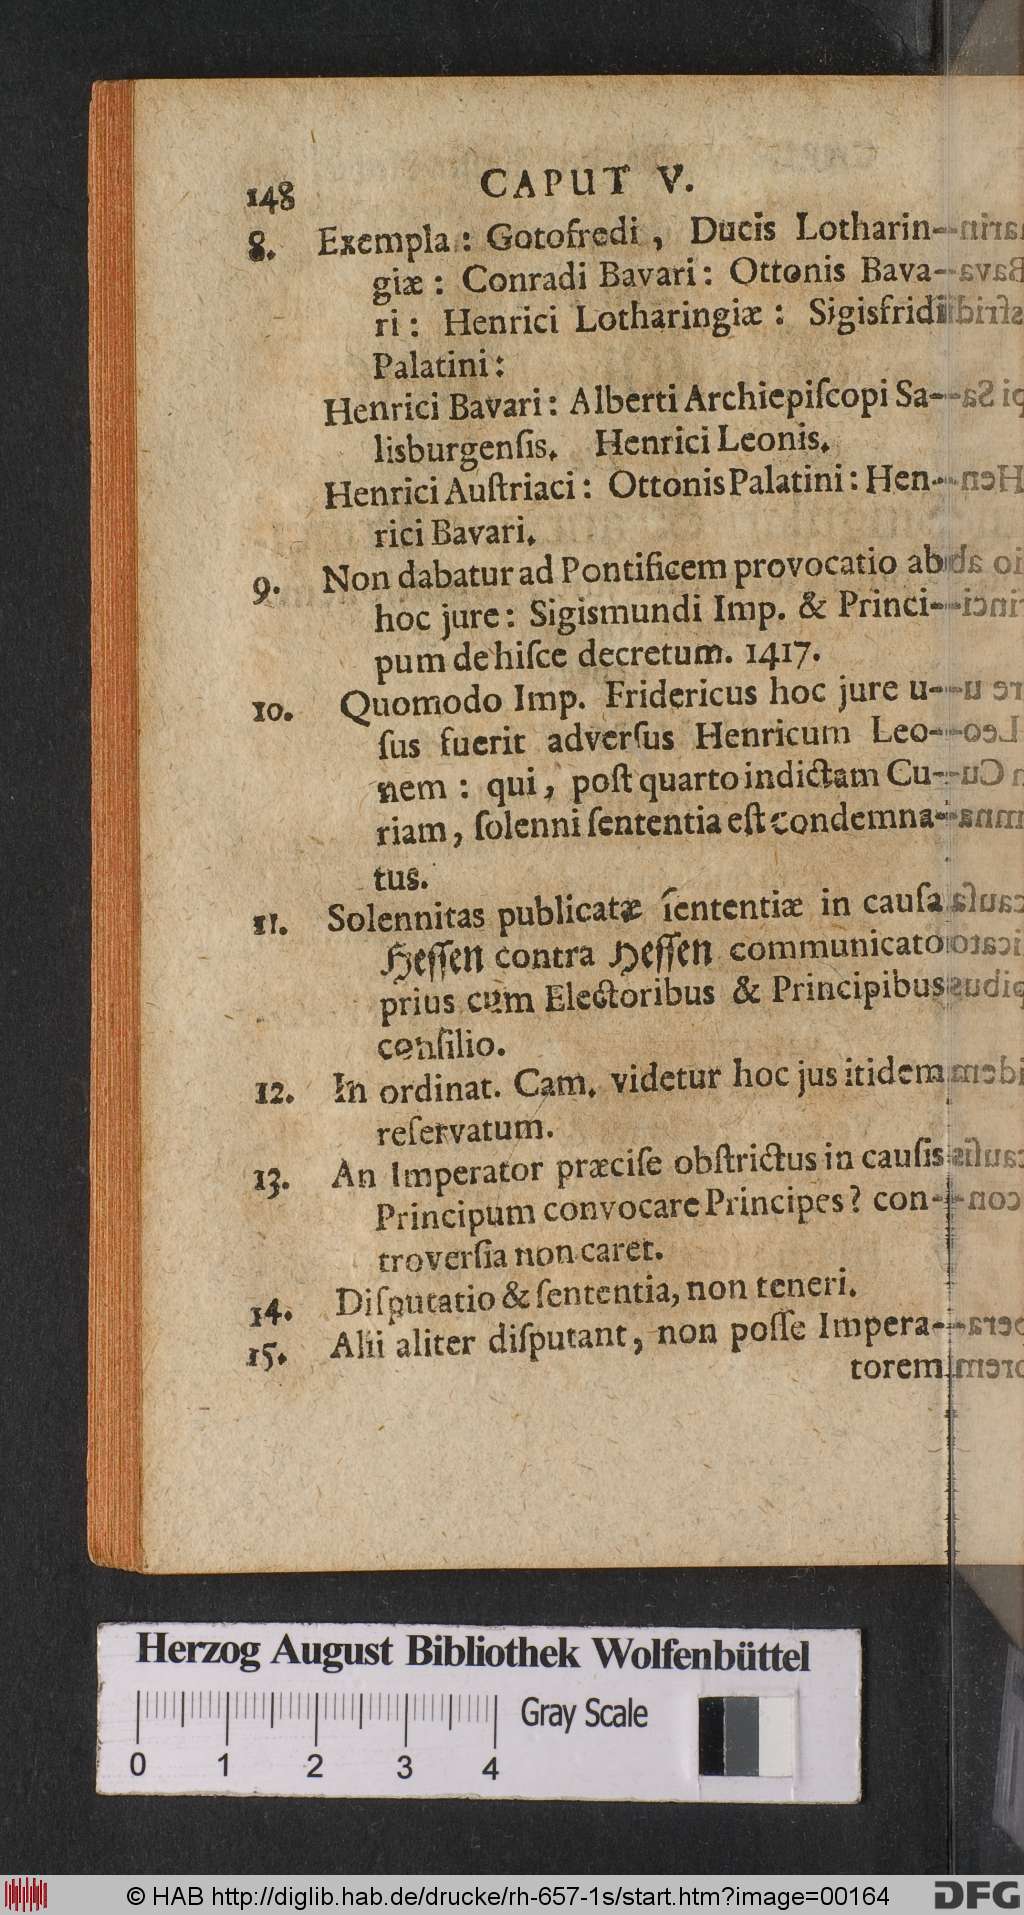 148 CAPUT V.
8. Exempla: Gotofredi, Ducis Lotharin-
giæ: Conradi Bavari: Ottonis Bava-
ri: Henrici Lotharingiæ: Sigisfridi
Palatini:
Henrici Bavari: Alberti Archiepiſcopi Sa-
lisburgenſis. Henrici Leonis.
Henrici Auſtriaci: Ottonis Palatini: Hen-
rici Bavari.
9. Non dabatur ad Pontificem provocatio ab
hoc jure: Sigismundi Imp. & Princi-
pum de hiſce decretum. 1417.
10. Quomodo Imp. Fridericus hoc jure u-
ſus fuerit adverſus Henricum Leo-
nem: qui, poſt quarto indictam Cu-
riam, ſolenni ſententia eſt condemna-
tus.
11. Solennitas publicatæ ſententiæ in cauſa
Heſſen contra Heſſen communicato
prius cum Electoribus & Principibus
conſilio.
12. In ordinat. Cam. videtur hoc jus itidem
reſervatum.
13. An Imperator præciſe obſtrictus in cauſis
Principum convocare Principes? con-
troverſia non caret.
14. Diſputatio & ſententia, non teneri.
15. Alii aliter diſputant, non poſſe Impera-
torem
Herzog August Bibliothek Wolfenbüttel
0 1 2 3 4 Gray Scale
© HAB http://diglib.hab.de/drucke/rh-657-1s/start.htm?image=00164 DFG